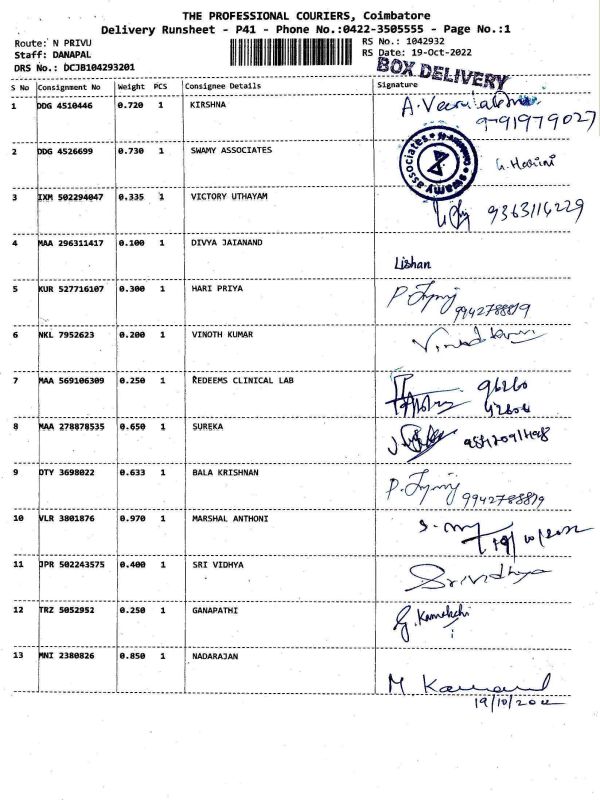 THE PROFESSIONAL COURIERS, Coimbatore
Delivery Runsheet - P41 - Phone No.:0422-3505555 - Page No.:1
Route: N PRIVU RS No.: 1042932
Staff: DANAPAL RS Date: 19-Oct-2022
DRS No.: DCJB104293201 BOX DELIVERY
S No Consignment No Weight PCS Consignee Details Signature
1 DDG 4510446 0.720 1 KIRSHNA
9791979027
2 DDG 4526699 0.730 1 SWAMY ASSOCIATES swamy associates
3 IXM 502294047 0.335 1 VICTORY UTHAYAM 9363114229
4 MAA 296311417 0.100 1 DIVYA JAIANAND
Lishan
5 KUR 527716107 0.300 1 HARI PRIYA
9942788819
6 NKL 7952623 0.200 1 VINOTH KUMAR
7 MAA 569106309 0.250 1 REDEEMS CLINICAL LAB
8 MAA 278878535 0.650 1 SUREKA
9 DTY 3698022 0.633 1 BALA KRISHNAN
9942788819
10 VLR 3801876 0.970 1 MARSHAL ANTHONI
19/10/2022
11 JPR 502243575 0.400 1 SRI VIDHYA
Srividhya
12 TRZ 5052952 0.250 1 GANAPATHI
13 MNI 2380826 0.850 1 NADARAJAN
19/10/2022